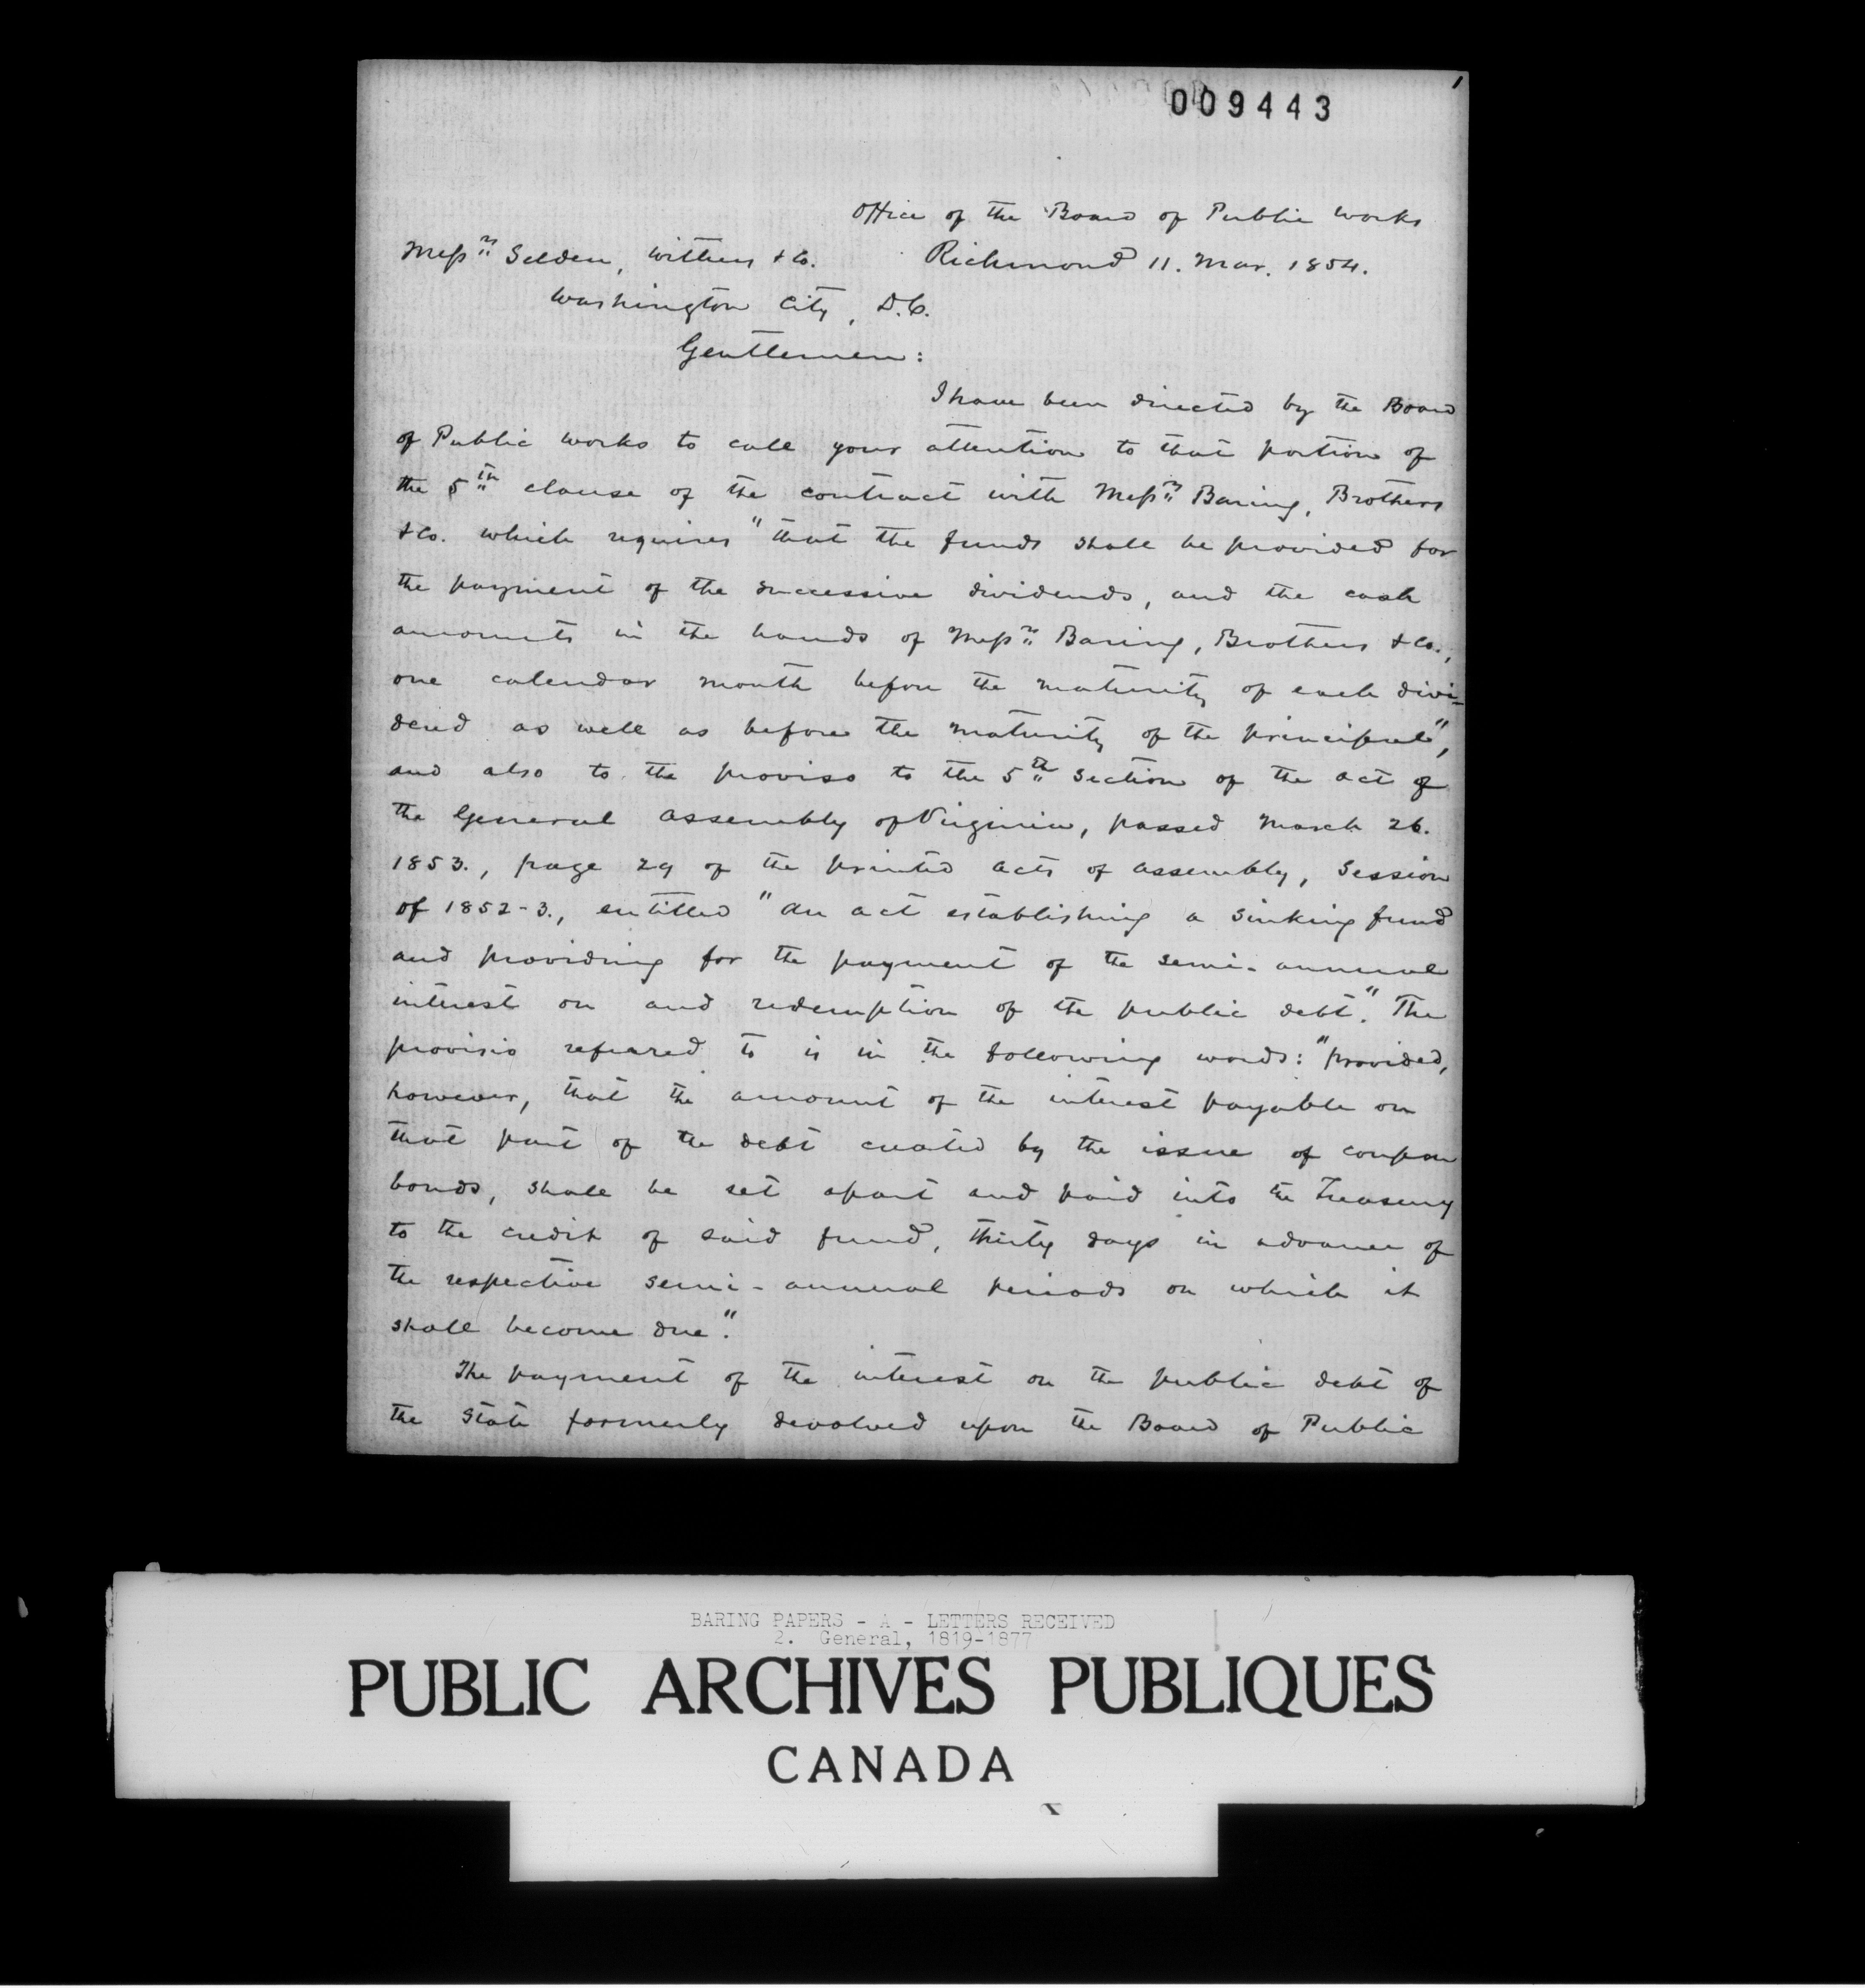 1
009443
Office of the Board of Public Works
Messrs Selden, Withers & Co. Richmond 11. Mar. 1854.
Washington City, D.C.
Gentlemen:
I have been directed by the Board
of Public Works to call your attention to that portion of
the 5th clause of the contract with Messrs Baring, Brothers
& Co. which requires "that the funds shall be provided for
the payment of the successive dividends, and the cash
amounts in the hands of Messrs Baring, Brothers & Co.,
one calendar month before the maturity of each divi-
dend as well as before the maturity of the principal",
and also to the proviso to the 5th section of the act of
the General Assembly of Virginia, passed March 26.
1853., page 29 of the printed acts of assembly, Session
of 1852-3., entitled "An act establishing a sinking fund
and providing for the payment of the semi-annual
interest on and redemption of the public debt." The
provisio refeared to is in the following words: "provided,
however, that the amount of the interest payable on
that part of the debt created by the issue of coupon
bonds, shall be set apart and paid into the Treasury
to the credit of said fund, thirty days in advance of
the respective semi-annual periods on which it
shall become due."
The payment of the interest on the public debt of
the State formerly devolved upon the Board of Public
BARING PAPERS - A - LETTERS RECEIVED
2. General, 1819-1877
PUBLIC ARCHIVES PUBLIQUES
CANADA